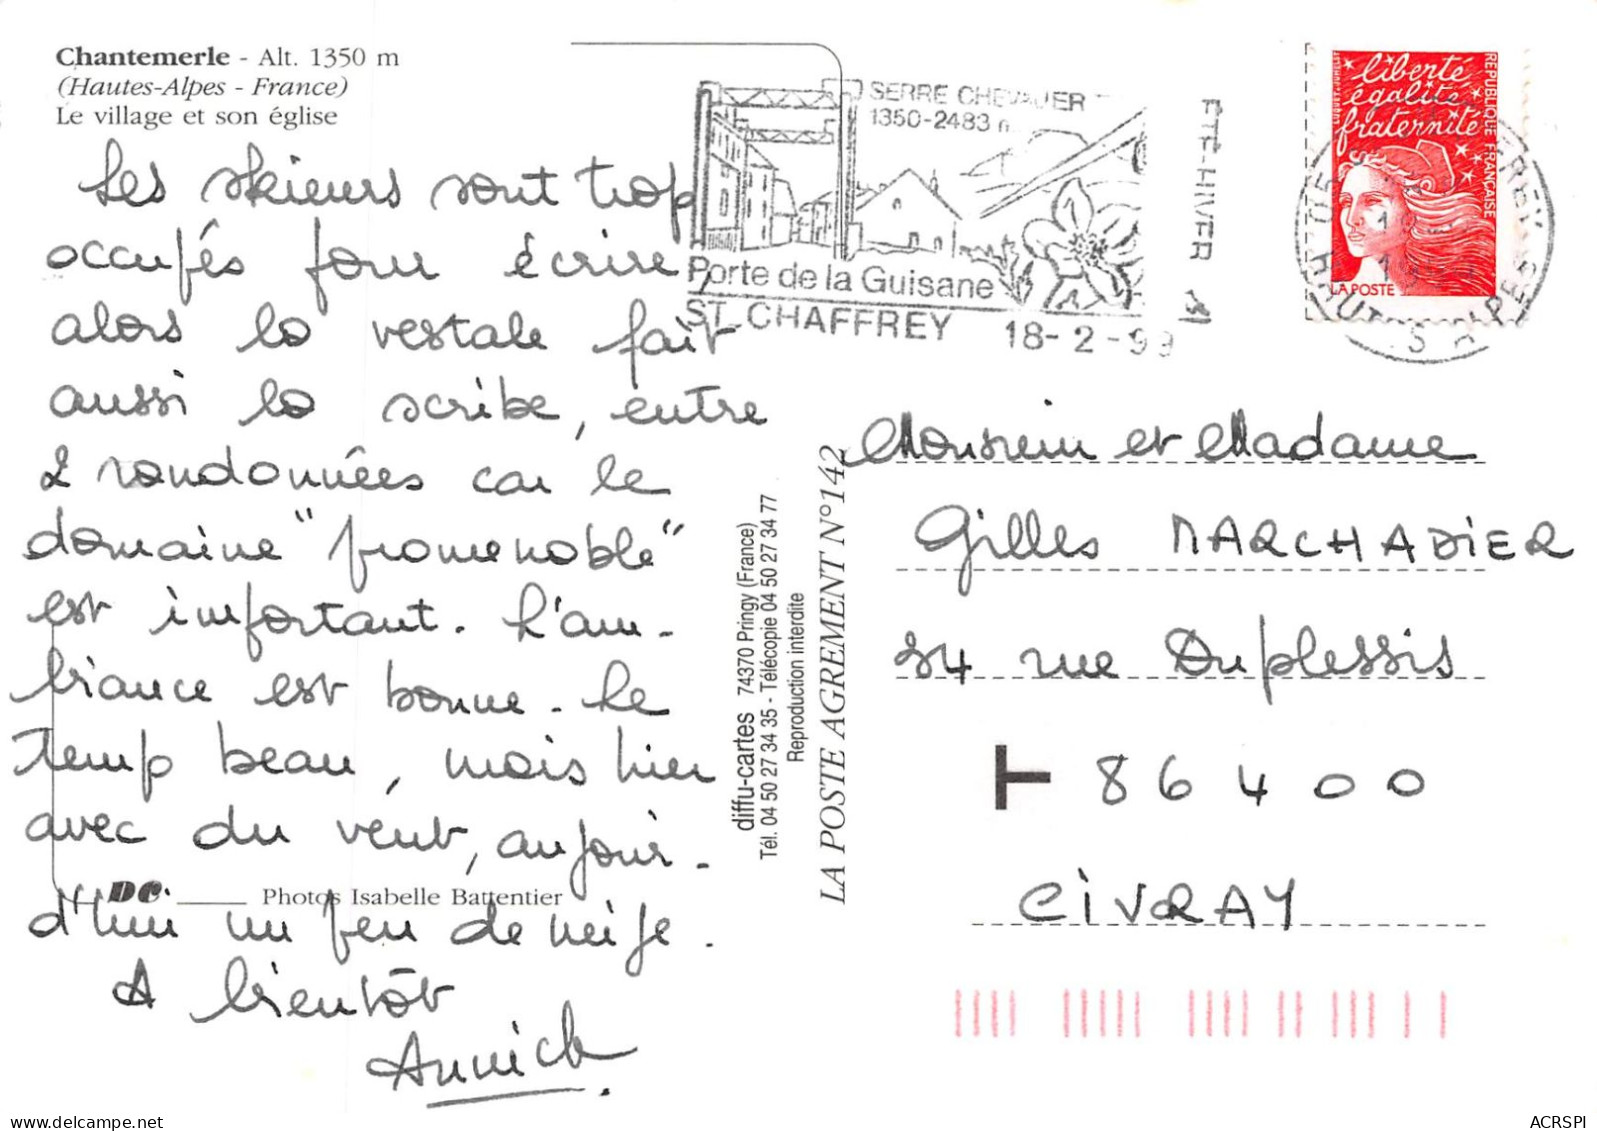 Chantemerle - Alt. 1350 m
(Hautes-Alpes - France)
Le village et son église
Les skieurs sont trop
occupés pour écrire
alors la vestale fait
aussi la scribe, entre
2 randonnées car le
domaine "promenable"
est important. L'am-
biance est bonne. Le
temp beau, mais hier
avec du vent, aujour-
d'hui un peu de neige.
A bientôt
Annick
DC
Photos Isabelle Battentier
diffu-cartes 74370 Pringy (France)
Tél. 04 50 27 34 35 - Télécopie 04 50 27 34 77
Reproduction interdite
LA POSTE AGREMENT N°142
SERRE CHEVALIER
1350-2483 m
ETE-HIVER
Porte de la Guisane
ST CHAFFREY 18-2-99
liberté
égalité
fraternité
REPUBLIQUE FRANÇAISE
LA POSTE
05
HAUTES ALPES
Monsieur et Madame
Gilles MARCHADIER
34 rue Duplessis
T 86400
CIVRAY
delcampe.net
ACRSPI